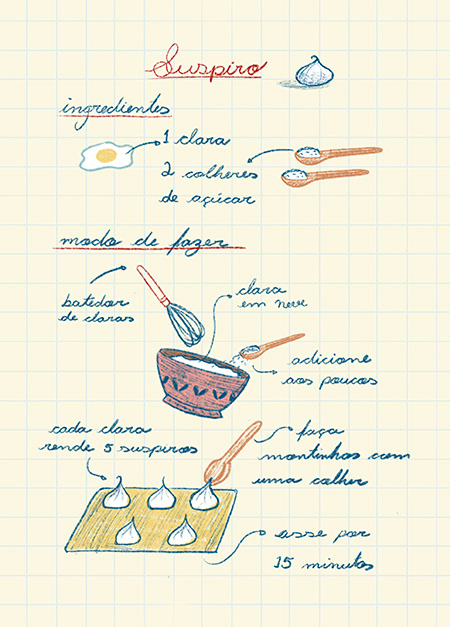 Suspiro
ingredientes
1 clara
2 colheres
de açúcar
modo de fazer
batedor
de claras
clara
em neve
adicione
aos poucos
cada clara
rende 5 suspiros
faça
montinhos com
uma colher
asse por
15 minutos